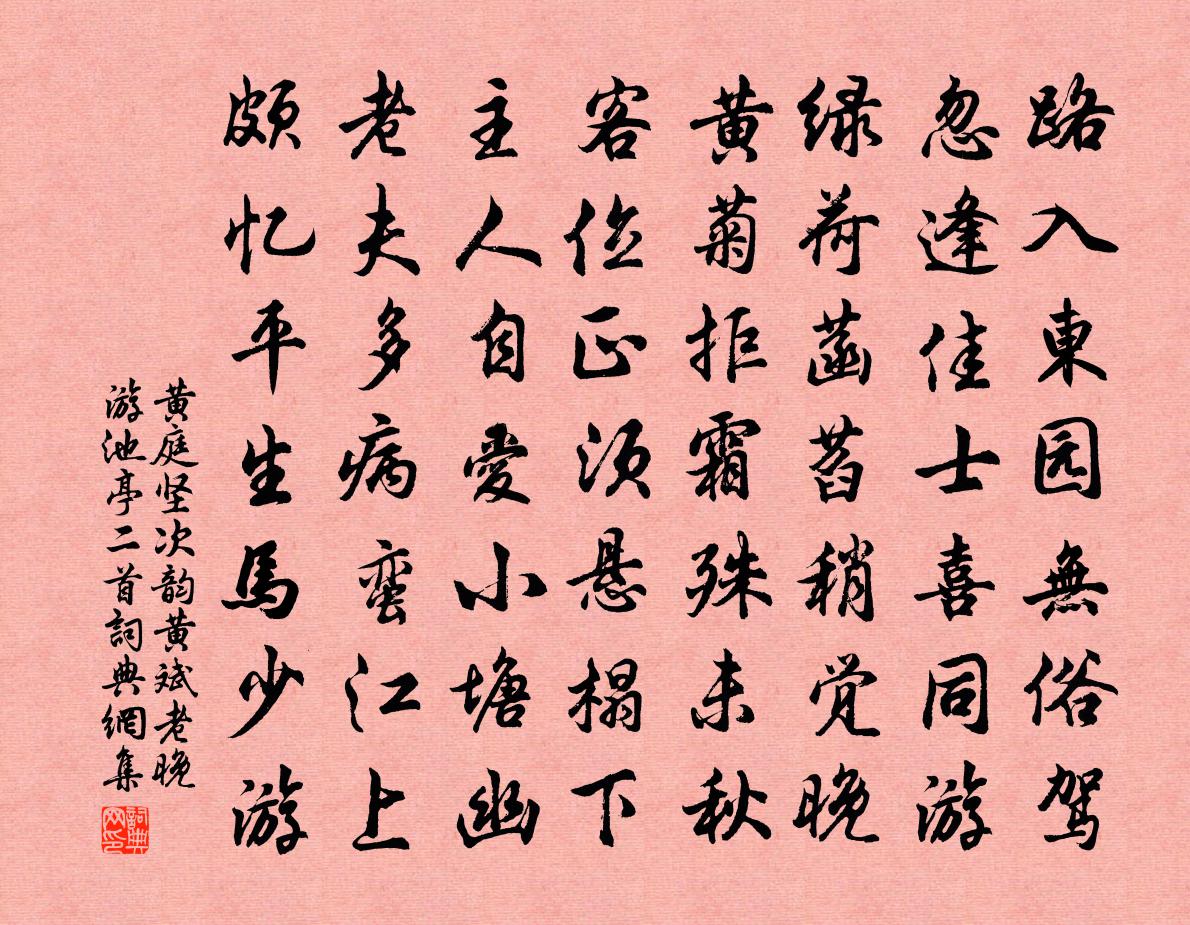 路入東园無俗驾
忽逢佳士喜同游
绿荷菡萏稍觉晚
黄菊拒霜殊未秋
客位正须悬榻下
主人自愛小塘幽
老夫多病蛮江上
颇忆平生馬少游
黄庭坚次韵黄斌老晚
游池亭二首詞典網集
詞典
网印